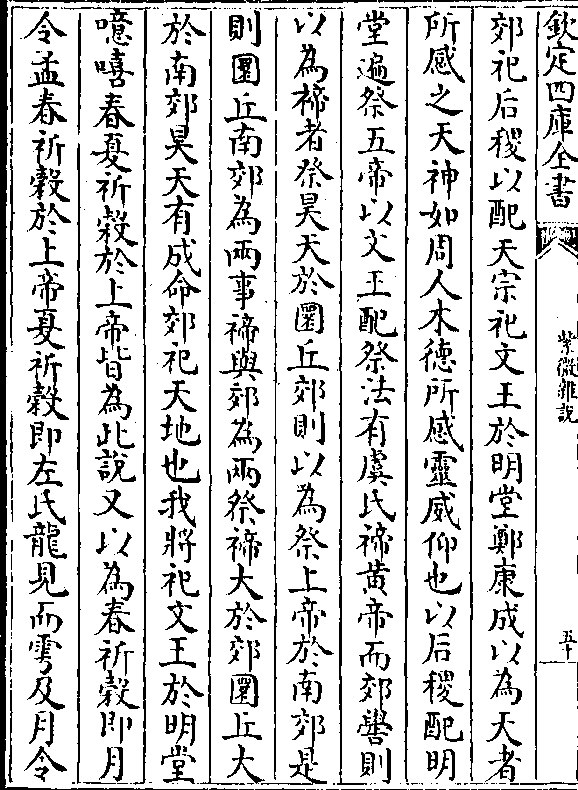 欽定四庫全書
紫微雜說
五十
郊祀后稷以配天宗祀文王於明堂鄭康成以為天者
所感之天神如周人木德所感靈威仰也以后稷配明
堂遍祭五帝以文王配祭法有虞氏禘黄帝而郊嚳則
以為禘者祭昊天於圜丘郊則以為祭上帝於南郊是
則圜丘南郊為兩事禘與郊為兩祭禘大於郊圜丘大
於南郊昊天有成命郊祀天地也我將祀文王於明堂
噫嘻春夏祈穀於上帝皆為此說又以為春祈穀即月
令孟春祈穀於上帝夏祈穀即左氏龍見而雩及月令